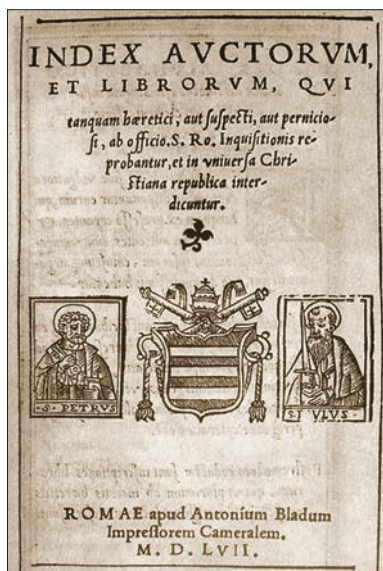 INDEX AVCTORVM,
ET LIBRORVM, QVI
tanquam hæretici, aut suspecti, aut pernicio-
si, ab officio. S. Ro. Inquisitionis re-
probantur, et in vniuersa Chri-
stiana republica inter-
dicuntur.
S. PETRVS
S. PAVLVS
ROMAE apud Antonium Bladum
Impressorem Cameralem.
M. D. LVII.